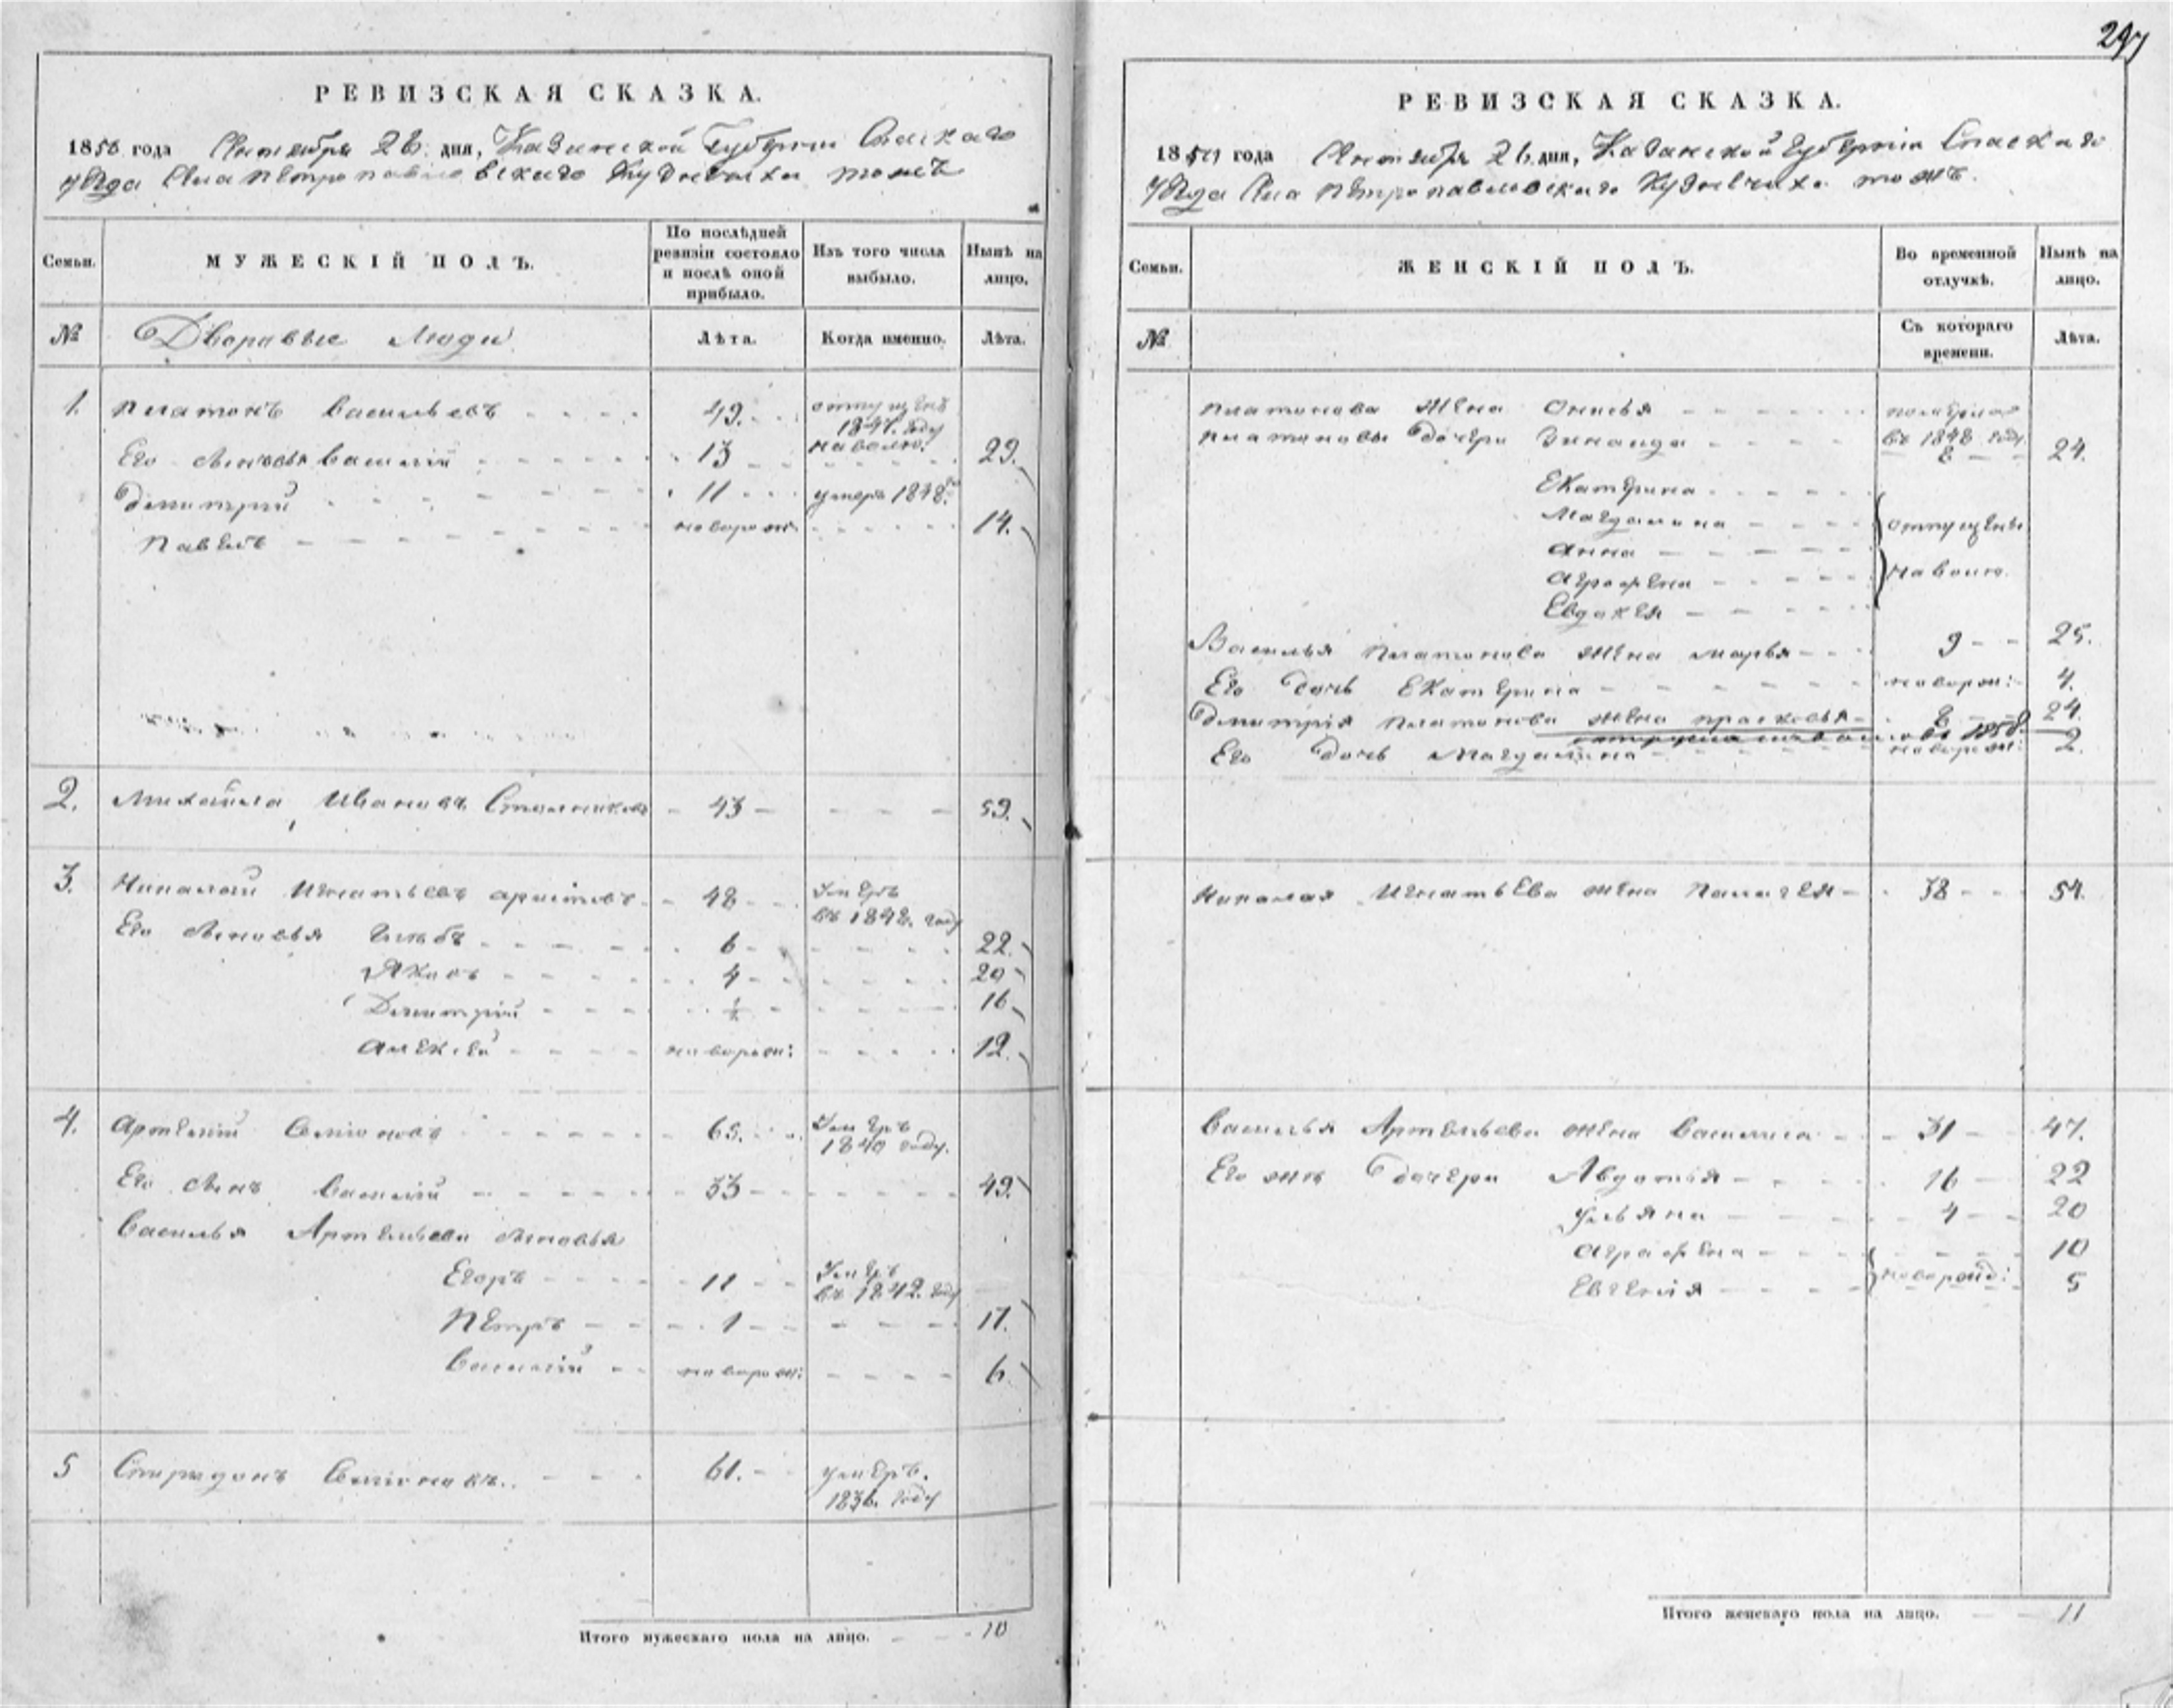 297
РЕВИЗСКАЯ СКАЗКА.
1850 года Сентября 26. дня, Казанской Губерніи Спаскаго
уѣзда Села Петропавловскаго тожъ
Семьи.
МУЖЕСКІЙ ПОЛЪ.
По послѣдней ревизіи состояло и послѣ оной прибыло.
Изъ того числа выбыло.
Нынѣ на лицо.
№
Дворовые Люди
Лѣта.
Когда именно.
Лѣта.
1. Платонъ Васильевъ 49. отпущенъ 1847. году на волю.
Его Сыновья Василій 13 29.
Дмитрій 11 умеръ 1848.
Павелъ новорож. 14.
2. Михайла Ивановъ 43 59.
3. Николай Игнатьевъ 48 умеръ въ 1848. году
Его Сыновья Глѣбъ 6 22.
Яковъ 4 20
Дмитрій ½ 16
Алексѣй новорож: 12.
4. Артемій Семіоновъ 65. Умеръ 1840 году.
Его Сынъ Василій 33 49.
Василья Артемьева Сыновья
Егоръ 11 Умеръ въ 1842. году
Петръ 1 17.
Василій новорож: 6.
5 Спиридонъ Семіоновъ. 61. умеръ. 1836. году
Итого мужескаго пола на лицо. 10
РЕВИЗСКАЯ СКАЗКА.
1850 года Сентября 26. дня, Казанской Губерніи Спаскаго
уѣзда Села Петропавловскаго тожъ.
Семьи.
ЖЕНСКІЙ ПОЛЪ.
Во временной отлучкѣ.
Нынѣ на лицо.
№
Съ котораго времени.
Лѣта.
Платонова Жена Онисья померла въ 1848 году
Платоновы Дочери Зинаида 8 24.
Екатерина
Магдалина отпущены
Анна
Аграфена на волю.
Евдокея
Василья Платонова Жена Марья 9 25.
Его Дочь Екатерина новорож: 4.
Дмитрія Платонова жена Прасковья 8 24.
Его Дочь Магдалина новорож: 2.
Николая Игнатьева жена Палагея 38 54.
Василья Артемьева жена Василиса 31 47.
Его жъ Дочери Авдотья 16 22
Ульяна 4 20
Аграфена 10
новорожд:
Евгенія 5
Итого женскаго пола на лицо. 11